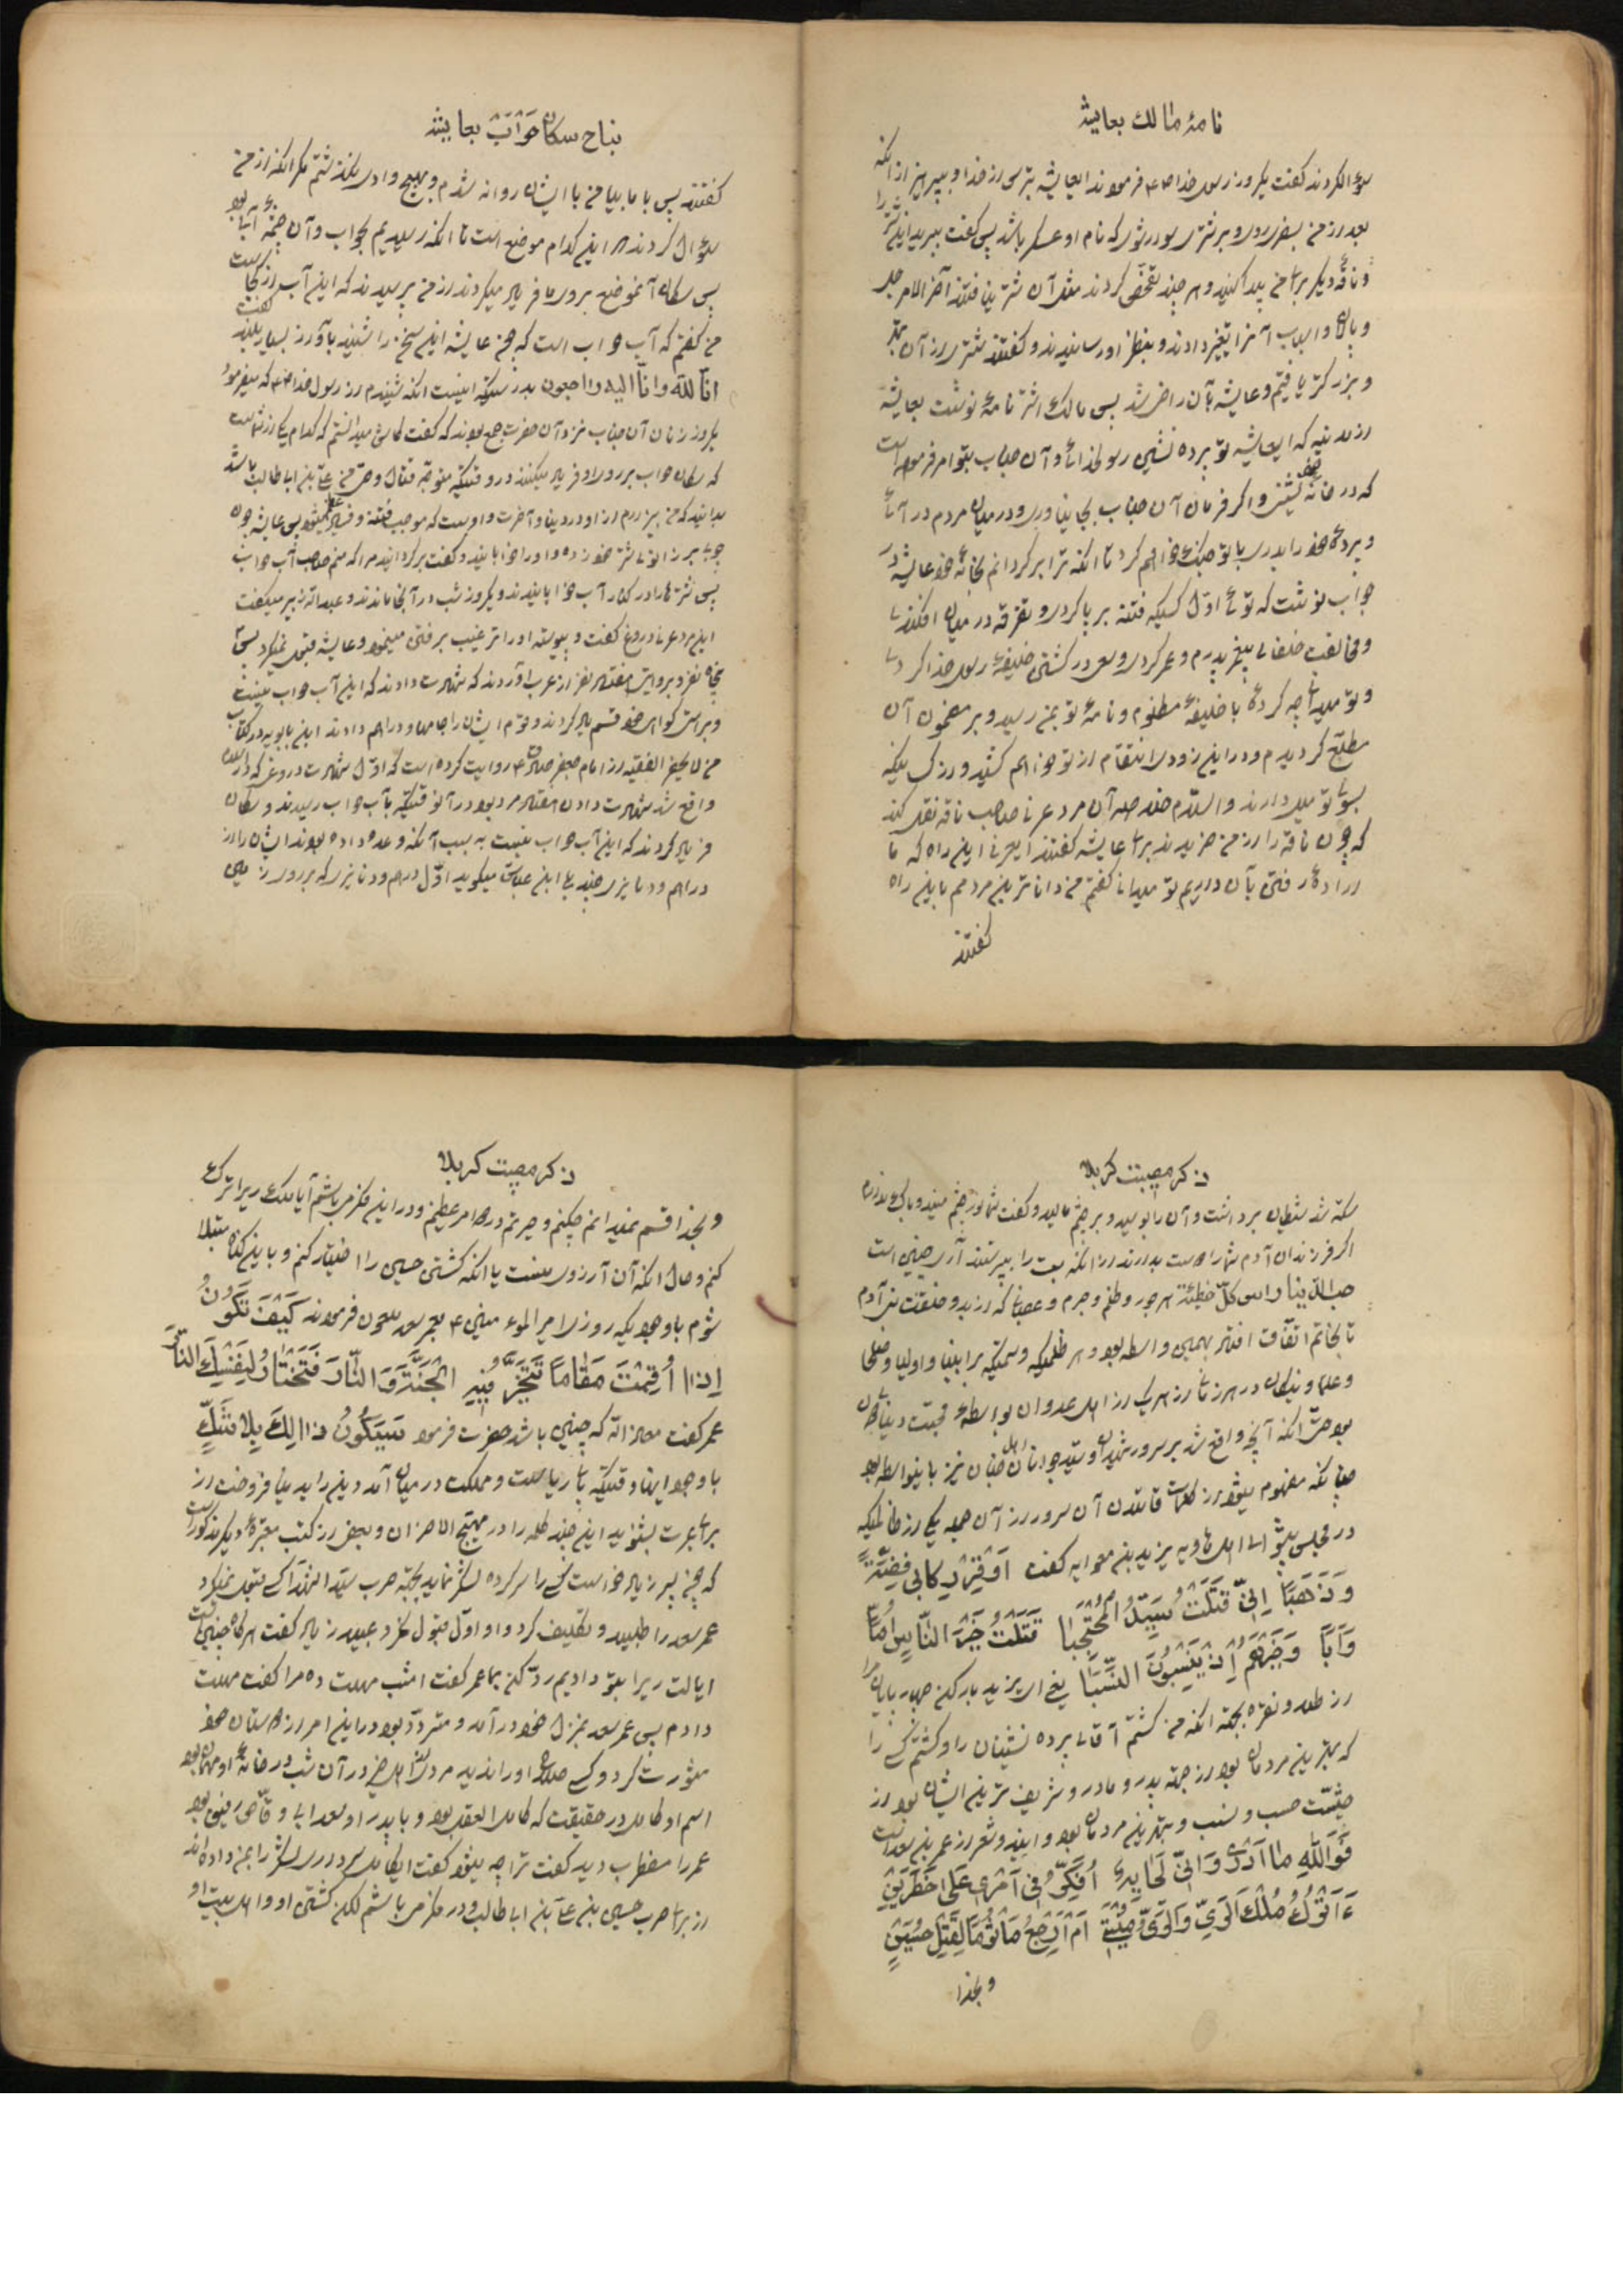 نامهٔ مالك بعایشه
سؤال کردند گفت یکروز رسول خدا فرمودند ایعایشه بترس از خدا و بپرهیز از انکه
بعد از من بسفر روی و بر شتری سوار شوی که نام او عسکر باشد پس گفت ببرید این شتر را
و ناقه دیکر برای من پیدا کنید و هر چند تفحص کردند مثل آن شتر نیافتند آخر الامر جل
و پالان و اسباب آنرا تغییر دادند و بنظر او رسانیدند و گفتند شتری از آن بهتر
و بزرکتر یافتیم و عایشه بآن راضی شد پس مالك اشتر نامهٔ نوشت بعایشه
از مدینه که ایعایشه تو پرده نشین رسولخدائی و آن جناب بتو امر فرموده است
که در خانهٔ خود بنشینی و اکر فرمان آن جناب بجا نیاوری و در میان مردم در آئی
و پردهٔ خود را بدری با تو جنك خواهم کرد تا انکه ترا بر کردانم بخانهٔ خود عایشه در
جواب نوشت که توئی اوّل کسیکه فتنه بر پا کردی و تفرقه در میان افکندی
و مخالفت خلفای پیغمبر پدرم و عمر کردی و سعی در کشتن خلیفهٔ رسول خدا کردی
و تو میدانی چه کردهٔ با خلیفهٔ مظلوم و نامهٔ تو بمن رسید و بر مضمون آن
مطلع کردیدم و در این زودی انتقام از تو خواهم کشید و از کسانیکه
بسوی تو میل دارند و السلام خلاصه آن مرد عرنی صاحب ناقه نقل کند
که چون ناقه را از من خریدند برای عایشه گفتند ایعرنی این راه که ما
ارادهٔ رفتن بآن داریم تو میدانی گفتم من داناترین مردمم باین راه
گفتند
نباح سکان حَوْأَبْ بعایشه
گفتند پس با ما بیا من با ایشان روانه شدم و بهیچ وادی نکذشتم مکر انکه از من
سؤال کردند که این کدام موضع است تا انکه رسیدیم بحواب و آن چشمهٔ آبی بود
پس سکان آنموضع بر روی ما فریاد میکردند از من پرسیدند که این آب از کجاست
من گفتم که آب حواب است که چون عایشه این سخن را شنید بآواز بسیار بلند گفت
انّا لله وانّا الیه راجعون بدرستیکه اینست انکه شنیدم از رسول خدا که میفرمود
یکروز زنان آن جناب نزد آن حضرت جمع بودند که گفت کاش میدانستم که کدام یکی از شماست
که سکان حواب بر روی او فریاد میکنند در وقتیکه متوجه قتال وصی من علی بن ابی طالب باشد
بدانید که من بیزارم از او در دنیا و آخرت و اوست که موجب فتنه و فساد عظیم میشود پس عایشه چون
پس شتر را در کنار آب خوابانیدند و یکروز شب در آنجا ماندند و عبدالله زبیر میکفت
این مرد عرنی دروغ گفت و پیوسته او را ترغیب بر رفتن مینمود و عایشه قبول نمیکرد
پنجاه نفر و بروایتی هفتاد نفر از عرب آوردند که شهادت دادند که این آب حواب نیست
و بر راستی کواهی خود قسم یاد کردند و تمام ایشان را جامها و دراهم دادند ابن بابویه در کتاب
من لا یحضر الفقیه از امام جعفر صادق روایت کرده است که اوّل شهادت دروغی که در اسلام
واقع شد شهادت دادن هفتاد مرد بود در آنوقتیکه بآب حواب رسیدند و سکان
فریاد کردند که این آب حواب نیست به سبب آنکه وعده داده بودند ایشان را از
دراهم و دنانیری چند پس ابن عباس میکوید اوّل درهم و دنانیری که بر روی زمین
ذکر مصیبت کربلا
سکه شد شیطان برداشت و آن را بوسید و بر چشم مالید و گفت شما نور چشم منید و باکی ندارم
اکر فرزندان آدم شما را دوست بدارند از انکه بت را بپرستند آری چنین است
حب الدّنیا رأس کلّ خطیئة هر جور و ظلم و جرم و عصیانی که از بدو خلقت بنی آدم
تا بخاتم اتّفاق افتاد بهمین واسطه بود و هر ظلمیکه و ستمیکه بر انبیا و اولیا و صلحا
و علما و نیکان در هر زمانی از هر یک از اهل عدوان بواسطهٔ محبّت دنیای دون
بود حتّی انکه آنچه واقع شد بر سرور شهیدان و سیّد جوانان اهل جنان نیز باینواسطه بود
چنانکه مفهوم میشود از کلمات قاتلان آن سرور از آن جمله یکی از ظالمان که
در مجلس پیشوای اهل هاویه یزید بن معاویه گفت اَوْقِرْ رِکابی فِضَّةً
وَ ذَهَبًا اِنّی قَتَلْتُ السَیِّدَ الْمُحَجَّبا قَتَلْتُ خَیْرَ النّاسِ اُمًّا
وَ اَبًا وَ خَیْرَهُمْ اِذْ یَنْسِبُونَ النَّسَبا یعنی ای یزید بار کن چهار پایان مرا
از طلا و نقره بجهة انکه من کشتم آقای پرده نشینان را و کشتم کسی را
که بهترین مردمان بود از جهة پدر و مادر و شریف ترین ایشان بود از
حیثیّت حسب و نسب و بهترین مردمان بود و ایضا دو شعر از عمر بن سعد است
فَوَاللهِ ما اَدْری وَ اِنّی لَحائِرٌ اُفَکِّرُ فی اَمْری عَلی خَطَرَیْنِ
ءَاَتْرُكُ مُلْكَ الرَّیِّ وَ الرَّیُّ مُنْیَتی اَمْ اَرْجِعُ مَأْثُومًا بِقَتْلِ حُسَیْنٍ
و بخدا
ذکر مصیبت کربلا
و بخدا قسم نمیدانم چکنم و حیرتم در دو امر عظیم و در این فکر میباشم آیا ملك ری را ترك
کنم و حال انکه آن آرزوی منست یا انکه کشتن حسین را اختیار کنم و باین کناه مبتلا
شوم با وجود یکه روزی امیر المؤمنین ع بعمر سعد ملعون فرمودند کَیْفَ تَکُونُ
اِذا اُقِمْتَ مَقامًا تُخَیَّرُ فِیهِ الْجَنَّةَ وَ النّارَ فَتَخْتارُ لِنَفْسِكَ النّارَ
عمر گفت معاذ الله که چنین باشد حضرت فرمود سَیَکُونُ ذالِكَ بِلا شَكٍّ
با وجود اینها وقتیکه پای ریاست و مملکت در میان آمد دین را بدنیا فروخت از
برای عبرت بشنوید این چند کلمه را در مهیّج الاحزان و بعضی از کتب معتبرهٔ دیکر مذکور است
که چون پسر زیاد خواست کسی را سرکرده لشکر نماید بجهة حرب سیّد الشهدا کسی قبول نمیکرد
عمر سعد را طلبید و تکلیف کرد و او اوّل قبول نکرد عبید زیاد گفت هرکاه چنین است
ایالت ری را بتو دادیم ردّ کن بما عمر گفت امشب مهلت ده مرا گفت مهلت
دادم پس عمر سعد بمنزل خود در آمد و متردّد بود در این امر از دوستان خود
مشورت کرد و کسی صلاح او را ندید مردی از اهل خیر در آن شب در خانهٔ او مهمان بود
اسم او کامل در حقیقت که کامل العقل بود و با پدر او سعد ابی وقّاص رفیق بود
عمر را مضطرب دید گفت ترا چه میشود گفت ایکامل سرداری لشکر را بمن داده اند
از برای حرب حسین بن علی بن ابی طالب و در فکر میباشم لکن کشتن او و اهل بیت او